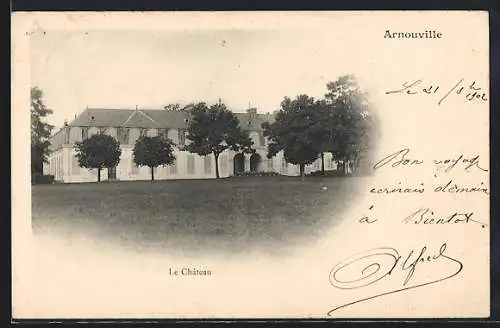 Arnouville
Le 21 7bre 1902
Bon voyage
écrirais demain
à Bientot
Alfred
Le Château